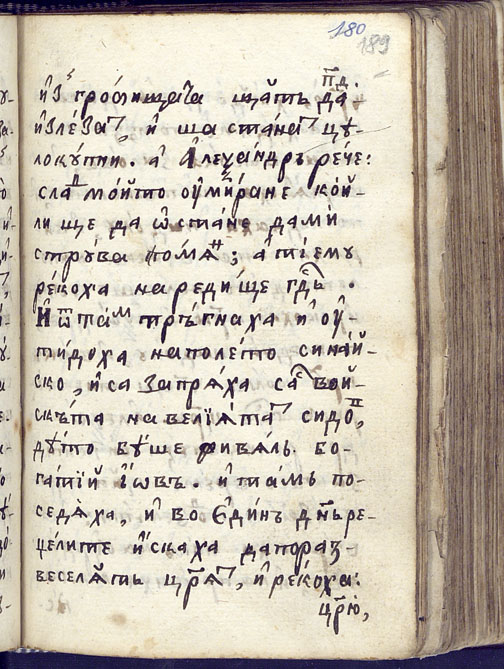 180
189
п҃д.
и҆з̾ гробищата щѧ́тъ да
и҆злеза́т, и҆ ща стана́т цѹ-
локу́пни. а҆ а҆леѯа́ндръ рече:
слад мо́йто оу҆ми́ране ко́й-
ли ще да ѡ҆ста́не да ми̑
стру́ва пома́н; а҆ ті́ ему
реко́ха на редище гдⷭ҇ь.
И҆ ѿта́м тръ́гнаха и҆ оу҆-
тидоха на поле́то сина́й-
ско, и҆ са запрѧ́ха саⷭ҇ вой-
ска́та на вели́ѧтат сидо́н,
дѹ́то бѹ́ше ривѧ́лъ. бо-
га́тій і҆ѡвъ. и҆ та́мъ по-
седѧ́ха, и҆ во є҆ди́нъ дн҃ь ре-
цели́те и҆́скаха да пораз-
веселѧ́тъ цр҃ѧт, и҆ реко́ха:
цр҃ю̀,